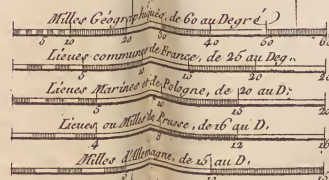 Milles Géographiques, de 60 au Degré
5 10 20 30 40 50 60
Lieues communes de France, de 25 au Deg.
5 10 15 20
Lieues Marines et de Pologne, de 20 au D.
5 10 15 20
Lieues ou Milles de Prusse, de 16 au D.
4 8 12 16
Milles d'Allemagne, de 15 au D.
12 15